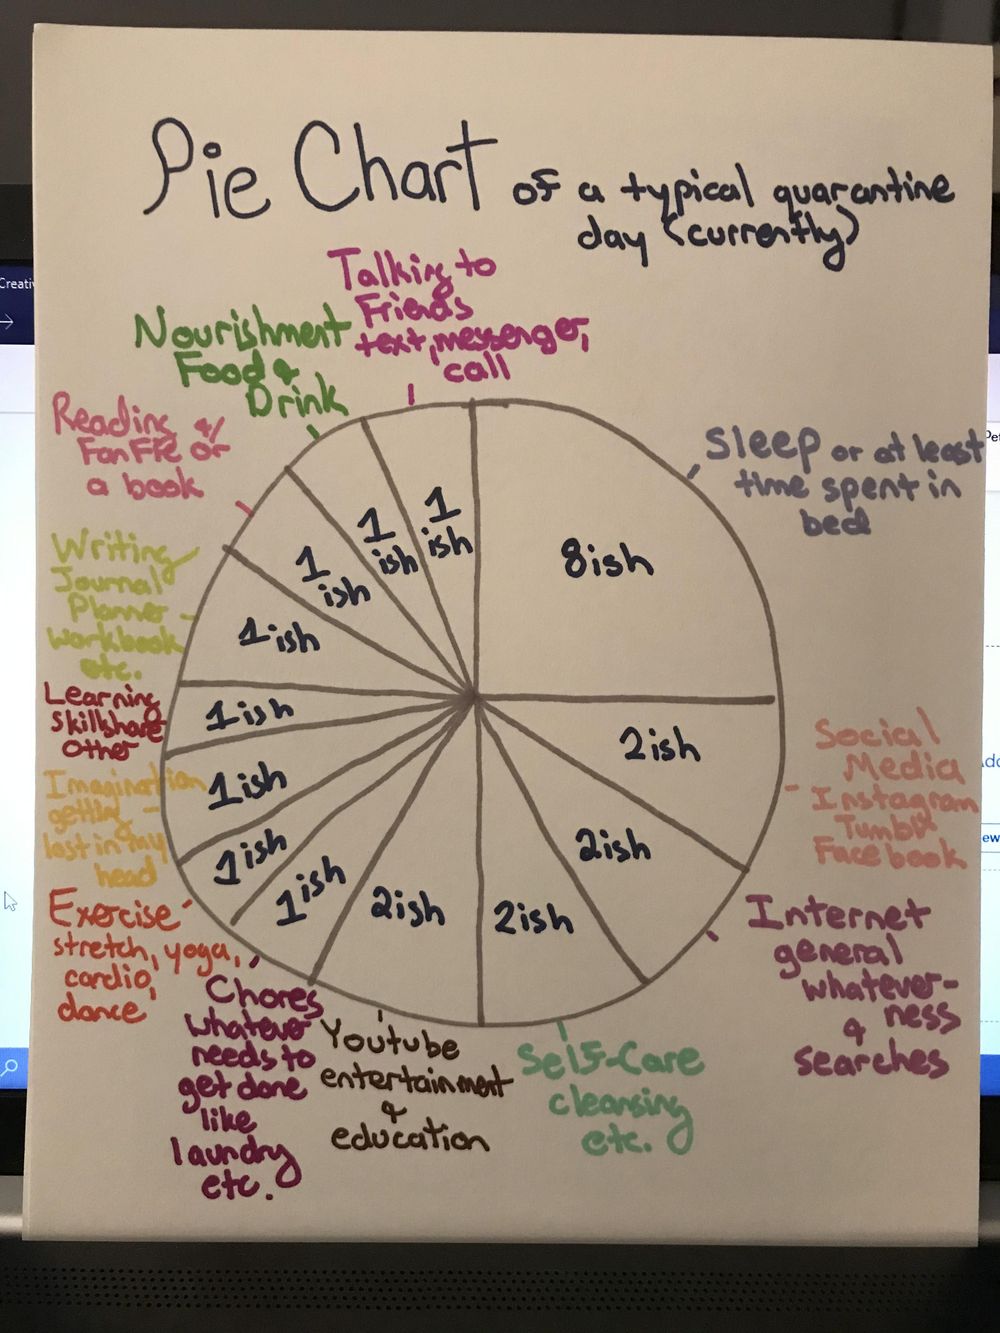 Pie Chart of a typical quarantine
day (currently)
Talking to
Friends
text, messenger,
call
Nourishment
Food &
Drink
Reading
FanFic or
a book
Writing
Journal
Planner
Workbook
etc.
Learning
Skillshare
Other
Imagination
getting
lost in my
head
Exercise
stretch, yoga,
cardio,
dance
Chores
whatever
needs to
get done
like
laundry
etc.
Youtube
entertainment
&
education
Self-Care
cleansing
etc.
Internet
general
whatever-
ness
&
searches
Social
Media
Instagram
Tumblr
Facebook
Sleep or at least
time spent in
bed
8ish
2ish
2ish
2ish
2ish
1ish
1ish
1ish
1ish
1ish
1
ish
1
ish
1
ish
Creati